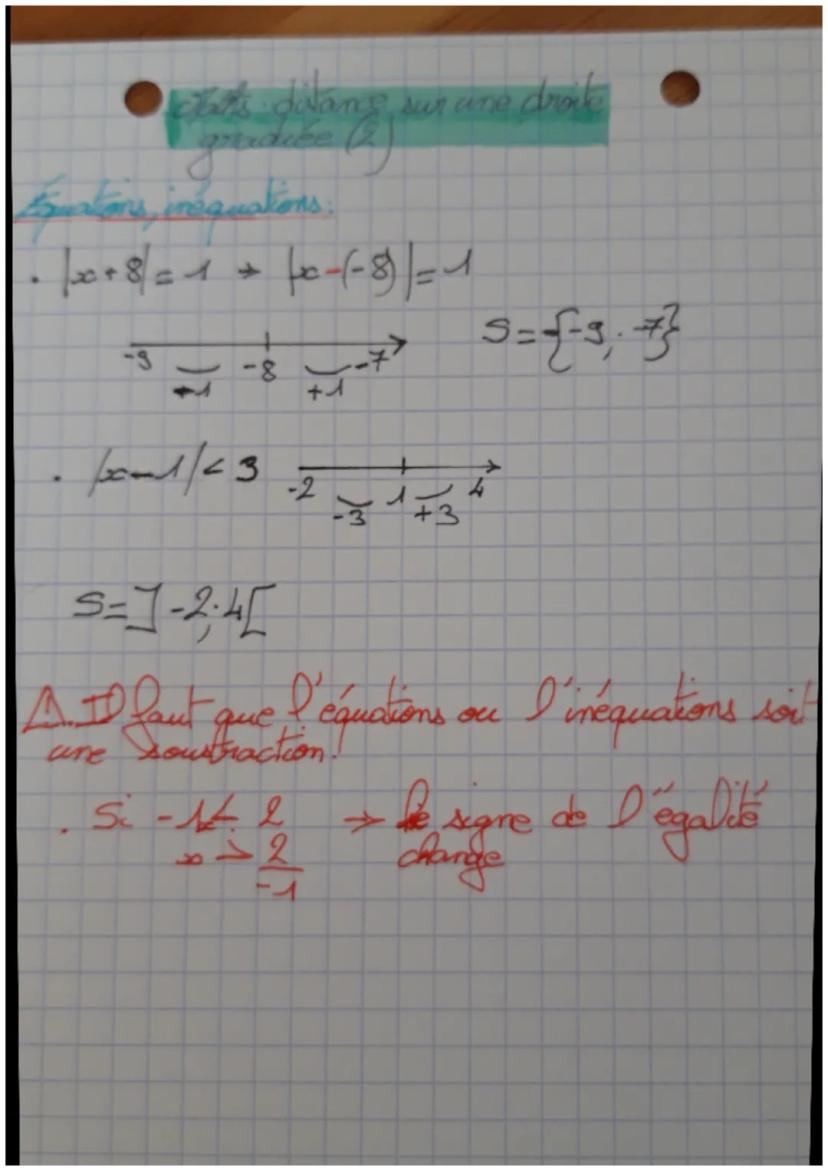 distance sur une droite
graduée (2)
Équations, inéquations:
. |x+8| = 1 → |x-(-8)| = 1
-9 -8 -7
-1 +1
S = {-9; -7}
. |x-1| < 3
-2 1 4
-3 +3
S = ]-2; 4[
⚠. Il faut que l'équations ou l'inéquations soit
une soustraction!
. Si -1x < 2 → le signe de l'égalité
x > 2/-1 change